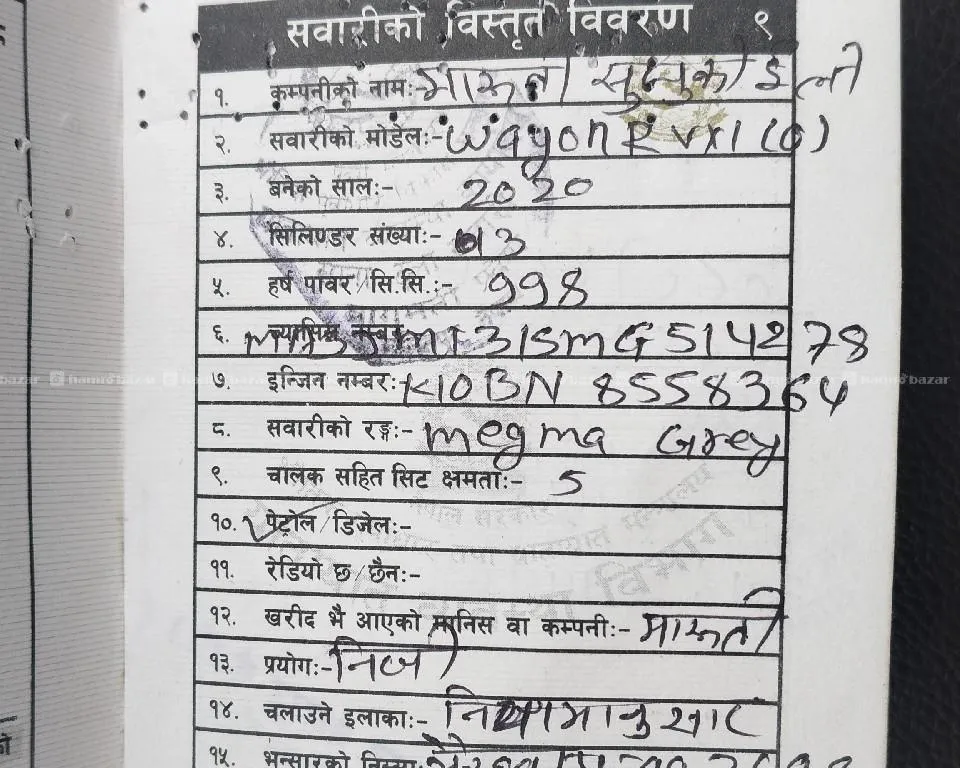 सवारीको विस्तृत विवरण ९
१. कम्पनीको नाम:- मारूती सुजुकी
२. सवारीको मोडेल:- WagonR VXI (O)
३. बनेको साल:- 2020
४. सिलिण्डर संख्या:- 3
५. हर्ष पावर/सि.सि.:- 998
६. च्यासिस नम्बर
७. इन्जिन नम्बर:- K10BN 8558364
८. सवारीको रङ्ग:- megma Grey
९. चालक सहित सिट क्षमता:- 5
१०. पेट्रोल/डिजेल:-
११. रेडियो छ/छैन:-
१२. खरीद भै आएको मानिस वा कम्पनी:- मारूती
१३. प्रयोग:- निजी
१४. चलाउने इलाका:- नियमानुसार
१५. भन्सारको निस्सा:-
hamrobazar